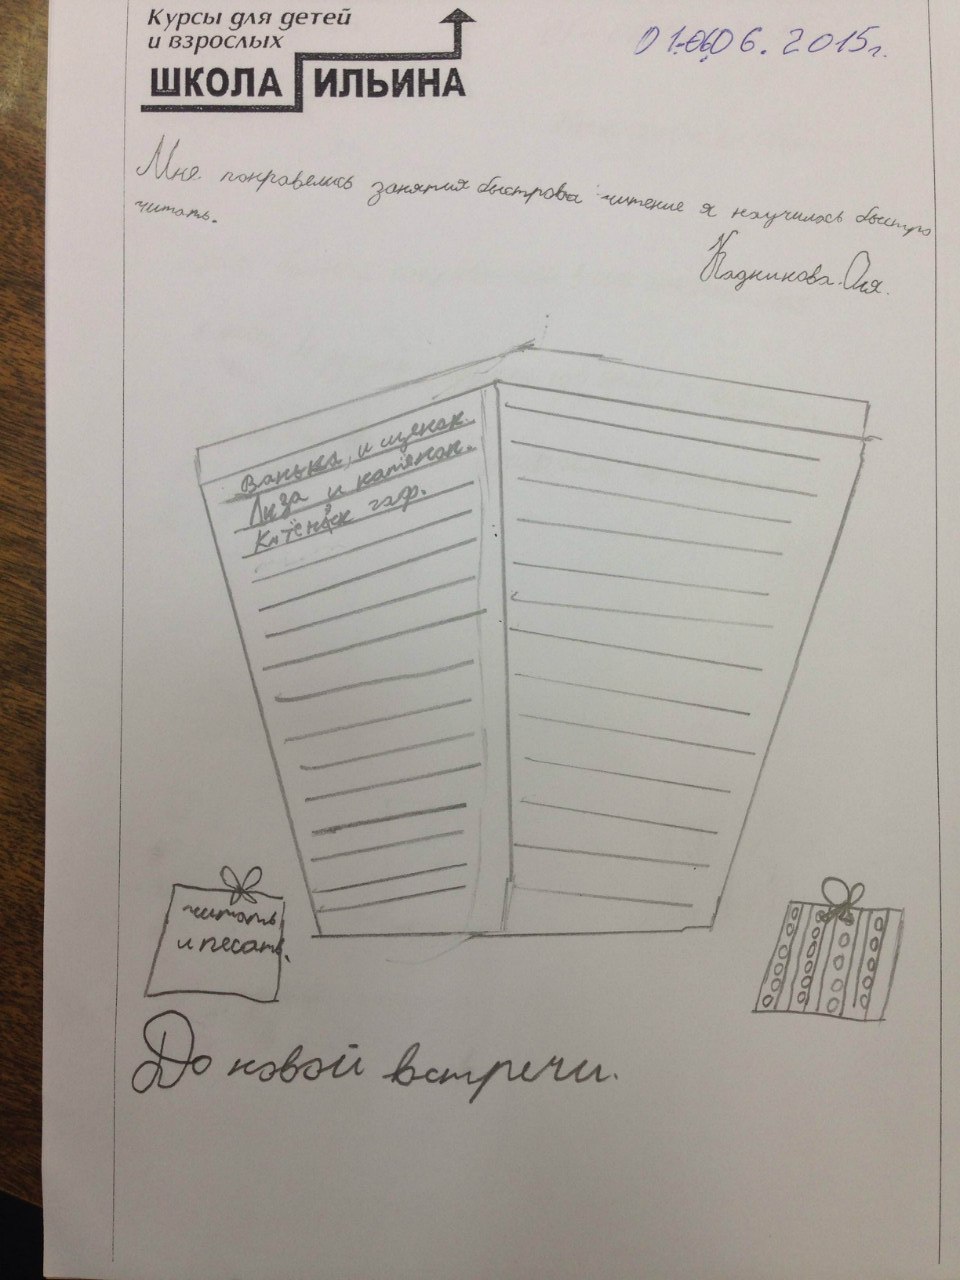 Курсы для детей
и взрослых
ШКОЛА ИЛЬИНА
01.06. 2015г.
Мне понравелись занятия быстрова читение я научилась быстро
читать.
Кадникова Оля.
Ванька, и щенок.
Лиза и катёнок.
Катёнак гаф.
читать
и песать.
До новой встречи.